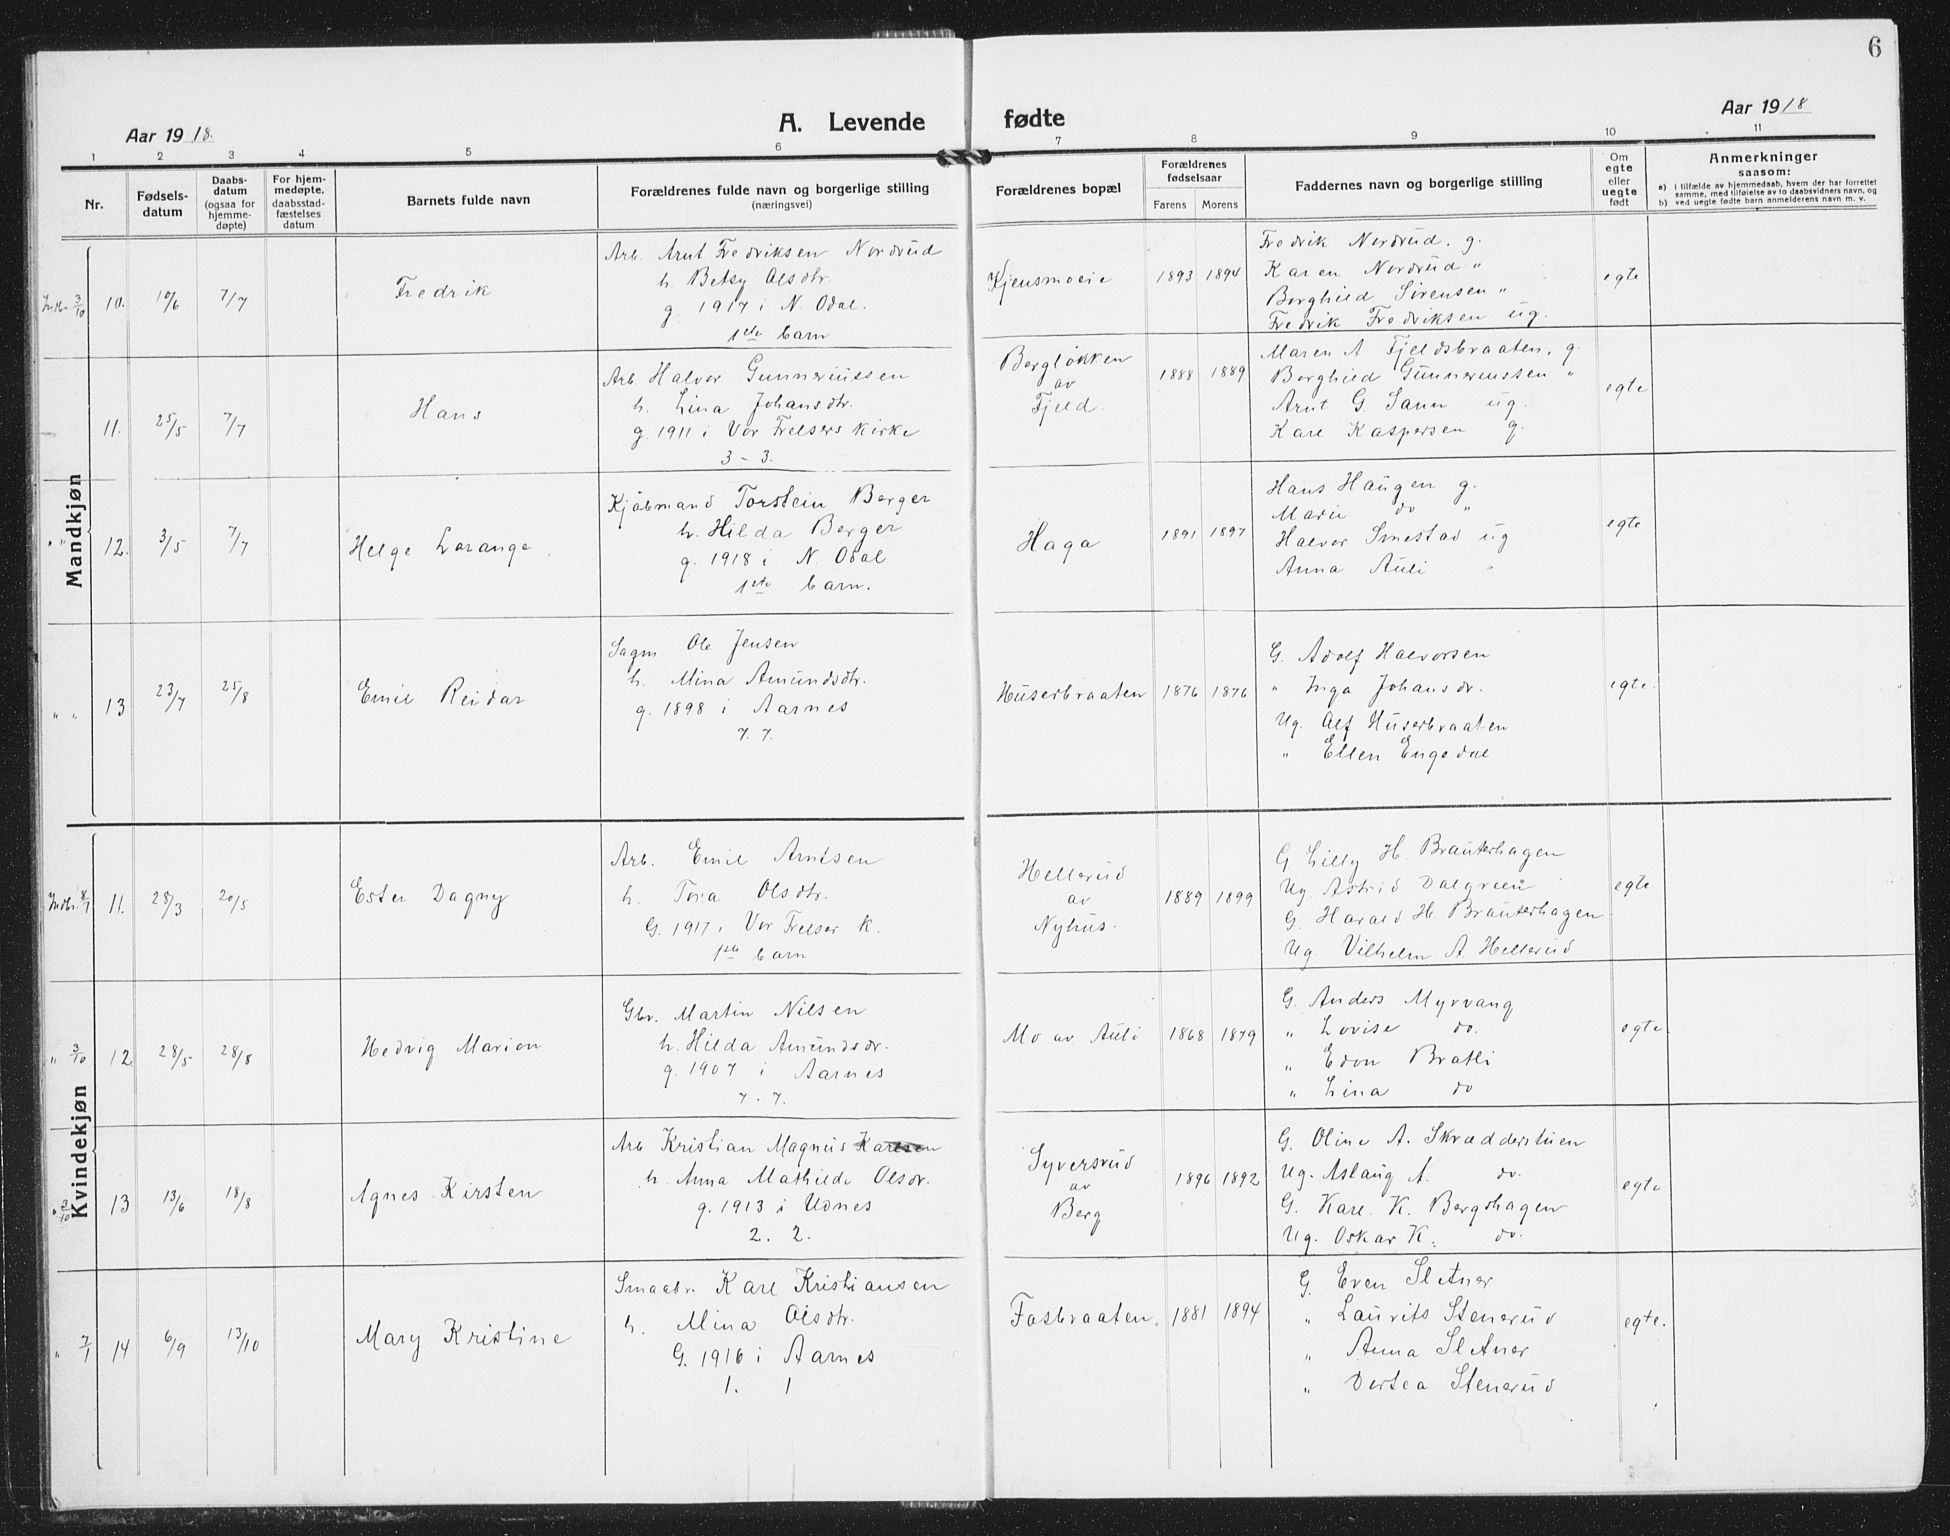 6
Aar 1918.
A. Levende fødte
Aar 1918
1 2 3 4 5 6 7 8 9 10 11
Nr.
Fødsels-
datum
Daabs-
datum
(ogsaa for
hjemme-
døpte)
For hjem-
medøpte,
daabsstad-
fæstelses
datum
Barnets fulde navn
Forældrenes fulde navn og borgerlige stilling
(næringsvei)
Forældrenes bopæl
Forældrenes
fødselsaar
Farens Morens
Faddernes navn og borgerlige stilling
Om
egte
eller
uegte
født
Anmerkninger
saasom:
a) i tilfælde av hjemmedaab, hvem der har forrettet
samme, med tilføielse av to daabsvidners navn, og
b) ved uegte fødte barn anmelderens navn m. v.
Mandkjøn
Indb. 3/10 10. 10/6 7/7 Fredrik
Arb. Arnt Fredriksen Nordrud
h. Betsy Olsdtr.
g. 1917 i N. Odal.
1ste barn
Kjensmoeie 1893 1894
Fredrik Nordrud. g.
Karen Nordrud "
Borghild Sørensen "
Fredrik Fredriksen ug.
egte
11. 25/5 7/7 Hans
Arb. Halvor Gunneriussen
h. Lina Johansdtr.
g. 1911 i Vor Frelsers kirke
3 - 3.
Bergløkken
av
Fjeld.
1888 1889
Maren A Fjeldsbraaten. g.
Borghild Gunneriussen "
Arnt G. Sann ug.
Karl Kaspersen g.
egte
" 12. 3/5 7/7 Helge Lorange
Kjøbmand Torstein Berger
h. Hilda Berger
g. 1918 i N. Odal
1ste barn.
Haga 1891 1897
Hans Haugen g.
Marie do "
Halvor Smestad ug
Anna Auli "
egte
" " 13 23/7 25/8 Emil Reidar
Sagm. Ole Jensen
h. Mina Amundsdtr.
g. 1898 i Aarnes
7. 7.
Huserbraaten 1876 1876
G. Adolf Halvorsen
" Inga Johansdr.
Ug. Alf Huserbraaten
" Ellen Engedal
egte.
Kvindekjøn
Indb. 8/7 11. 28/3 20/5 Ester Dagny
Arb. Emil Arntsen
h. Tora Olsdtr.
G. 1917 i Vor Frelser k.
1ste barn
Hellerud
av
Nyhus.
1889 1899
G Lilly H. Brauterhagen
Ug. Astrid Dalgreen
G. Harald H. Brauterhagen
Ug. Vilhelm A. Hellerud
egte
" 3/10 12. 28/5 28/8 Hedvig Marion
Gbr. Martin Nilsen
h. Hilda Amundsdr.
g. 1907 i Aarnes
7. 7.
Mo av Auli 1868 1879
G. Anders Myrvang
" Lovise do.
" Edon Bratli
" Lina do
egte.
13 13/6 18/8 Agnes Kirsten
Arb Kristian Magnus Karlsen
h. Anna Mathilde Olsdr.
g. 1913 i Udnes
2. 2.
Syversrud
av
Berg
1896 1892
G. Oline A. Skrædderstuen
Ug. Aslaug A. do.
G. Karl. K. Bergshagen
Ug. Oskar K. do.
egte
" 7/1 14 6/9 13/10 Mary Kristine
Smaabr. Karl Kristiansen
h. Mina Olsdtr.
G. 1916 i Aarnes
1. 1
Fosbraaten. 1881 1894
G. Even Sletner
" Laurits Stenerud
" Anna Sletner
" Dortea Stenerud
egte.